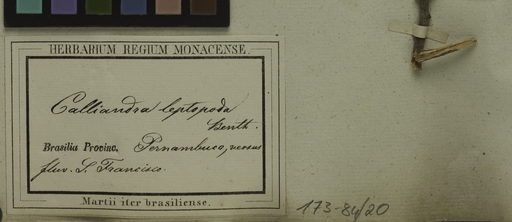 HERBARIUM REGIUM MONACENSE.
Calliandra leptopoda
Benth.
Brasilia Provinc. Pernambuco, versus
fluv. S. Francisco.
Martii iter brasiliense.
173-84/20